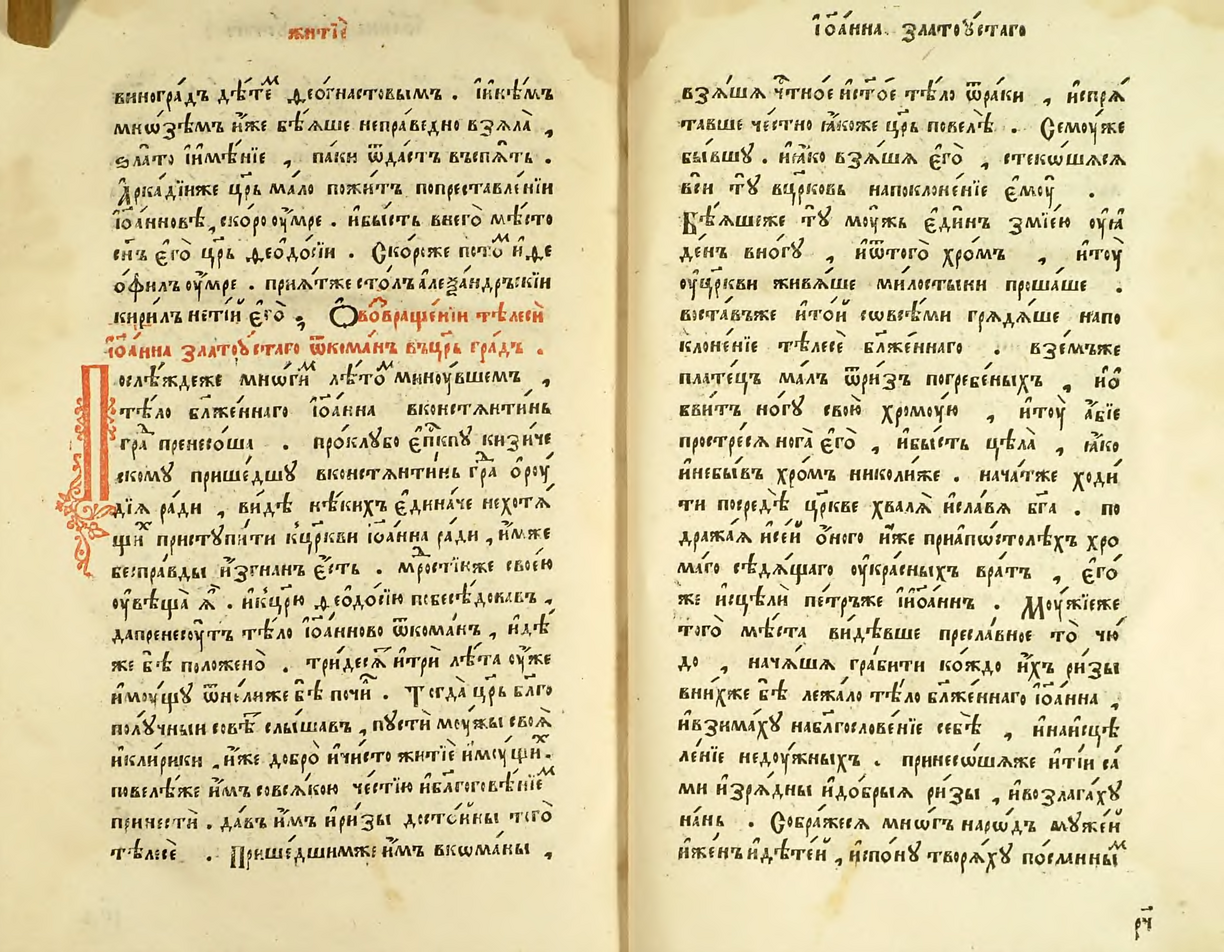 житїѐ
виногра́дъ дѣ́теᷟ ѳео́гнастовымъ . и҆инѣ́мъ
мнѡ́зѣмъ и҆́же бѣ́ѧше непра́ведно взѧла̀ ,
ѕла́то и҆имѣ́нїе , па́ки ѿда́стъ въспѧ́ть .
А҆рка́дїиже цр҃ь ма́ло пожи́тъ попреставле́нїи
і҆ѡа́нновѣ , ско́ро оу҆́мре . ибы́сть внего̀ мѣ́сто
сн҃ъ є҆го̀ цр҃ь ѳеѻдо́сїи . Ско́рѡже потоᷟ и҆ѳе
о҆́филъ оу҆́мре . прїѧ́тже сто́лъ а҆леѯа́ндръскїи
кири́лъ нетїи є҆го̀ . Ѻвозвраще́нїи тѣ́лесѝ
і҆ѡа́нна златоꙋ́стаго ѿкома́нъ въцр҃ь гра́дъ .
Послѣ́ждеже мно́гиᷟ лѣ́тоᷟ минꙋ́вшемъ ,
тѣ́ло бл҃же́ннаго і҆ѡа́нна вконстѧнти́нь
граⷣ пренесо́ша . про́клубо є҆пⷭ҇кпу кизи́че
скому прише́дшу вконстѧнти́нь граⷣ о҆рꙋ́
дїѧ ра́ди , ви́дѣ нѣ́кихъ є҆дина́че нехотѧ́
щиⷯ пристꙋпи́ти кцр҃кви і҆ѡа́нна ра́ди , и҆́мже
беспра́вды и҆згна́нъ є҆́сть . мⷣростїюже свое́ю
оу҆вѣща̀ ѧ҆̀ . и҆кцр҃ю ѳеѻдо́сїю побесѣ́довавъ ,
дапренесꙋ́тъ тѣ́ло і҆ѡа́нново ѿкома́нъ , и҆дѣ́
же бѣ̀ положено̀ . три́десѧ и҆трѝ лѣ́та оу҆́же
и҆мꙋ́щꙋ ѿне́лиже бѣ̀ почѝ . Тогда̀ цр҃ь бл҃го
полу́чныи совѣ́тъ слы́шавъ , пустѝ мꙋ́жы своѧ̀
и҆кли́рики , и҆́же добро̀ и҆чи́сто житїѐ и҆мꙋ́щиⷯ .
повелѣ́же и҆̀мъ совсѧ́кою че́стїю и҆бл҃гоговѣ́нїеᷟ
принестѝ . да́въ и҆̀мъ и҆ри́зы досто́ины того̀
тѣ́лесѐ . Прише́дшимже и҆̀мъ вкѡма́ны ,
і҆ѡа́нна златоꙋ́стаго
взѧ́шѧ чⷭ҇тно́е и҆ст҃о́е тѣ́ло ѿра́ки , и҆спрѧ́
тавше че́стно ꙗ҆́коже цр҃ь повелѣ̀ . Семꙋ́же
бы́вшу . и҆ꙗ҆́ко взѧ́шѧ є҆го̀ , стеко́шѧсѧ
всѝ тꙋ̀ вцр҃ковь напоклоне́нїе є҆мꙋ̀ .
Бѣ́ѧшеже тꙋ̀ мꙋ́жь є҆ди́нъ змі́ею оу҆ꙗ҆́
де́нъ вно́гу , и҆ѿтого̀ хро́мъ , и҆тꙋ̀
оу҆цр҃кви живѧ́ше ми́лостыни прошаше .
воста́въже и҆то́й сѡвсѣ́ми грѧдѧ́ше напо
клоне́нїе тѣ́лесе бл҃же́ннаго . взе́мъже
плате́цъ ма́лъ ѿри́зъ погребе́ныхъ , и҆о҆
вви́тъ но́гу свою̀ хромꙋ́ю , и҆тꙋ̀ а҆́бїе
простре́сѧ нога̀ є҆го̀ , и҆бы́сть цѣла̀ , ꙗ҆́ко
и҆небы́въ хро́мъ николи́же . нача́тже ходи́
ти посредѣ̀ цр҃кве хвалѧ̀ и҆сла́вѧ бг҃а . по
дража́ѧ и҆се́й о҆́ного и҆́же приа҆пⷭ҇толѣхъ хро
ма́го сѣдѧ́щаго оу҆кра́сныхъ вра́тъ , є҆го̀
же и҆сцѣлѝ пе́тръже и҆і҆ѡа́ннъ . Мꙋ́жїеже
того̀ мѣ́ста ви́дѣвше пресла́вное то̀ чю́
до , нача́шѧ гра́бити ко́ждо и҆́хъ ри́зы
вни́хже бѣ̀ лежа́ло тѣ́ло бл҃же́ннаго і҆ѡа́нна ,
и҆взима́хꙋ набл҃гослове́нїе себѣ̀ , и҆наи҆сцѣ
ле́нїе недꙋ́жныхъ . принесо́шѧже и҆ті́и са́
ми и҆зрѧ́дны и҆до́брыѧ ри́зы , и҆возлага́хꙋ
на́нь . Собра́жесѧ мно́гъ наро́дъ мꙋже́й
и҆же́нъ и҆дѣте́й , и҆спо́ну творѧ́хꙋ по́сланныᷟ
рч҃